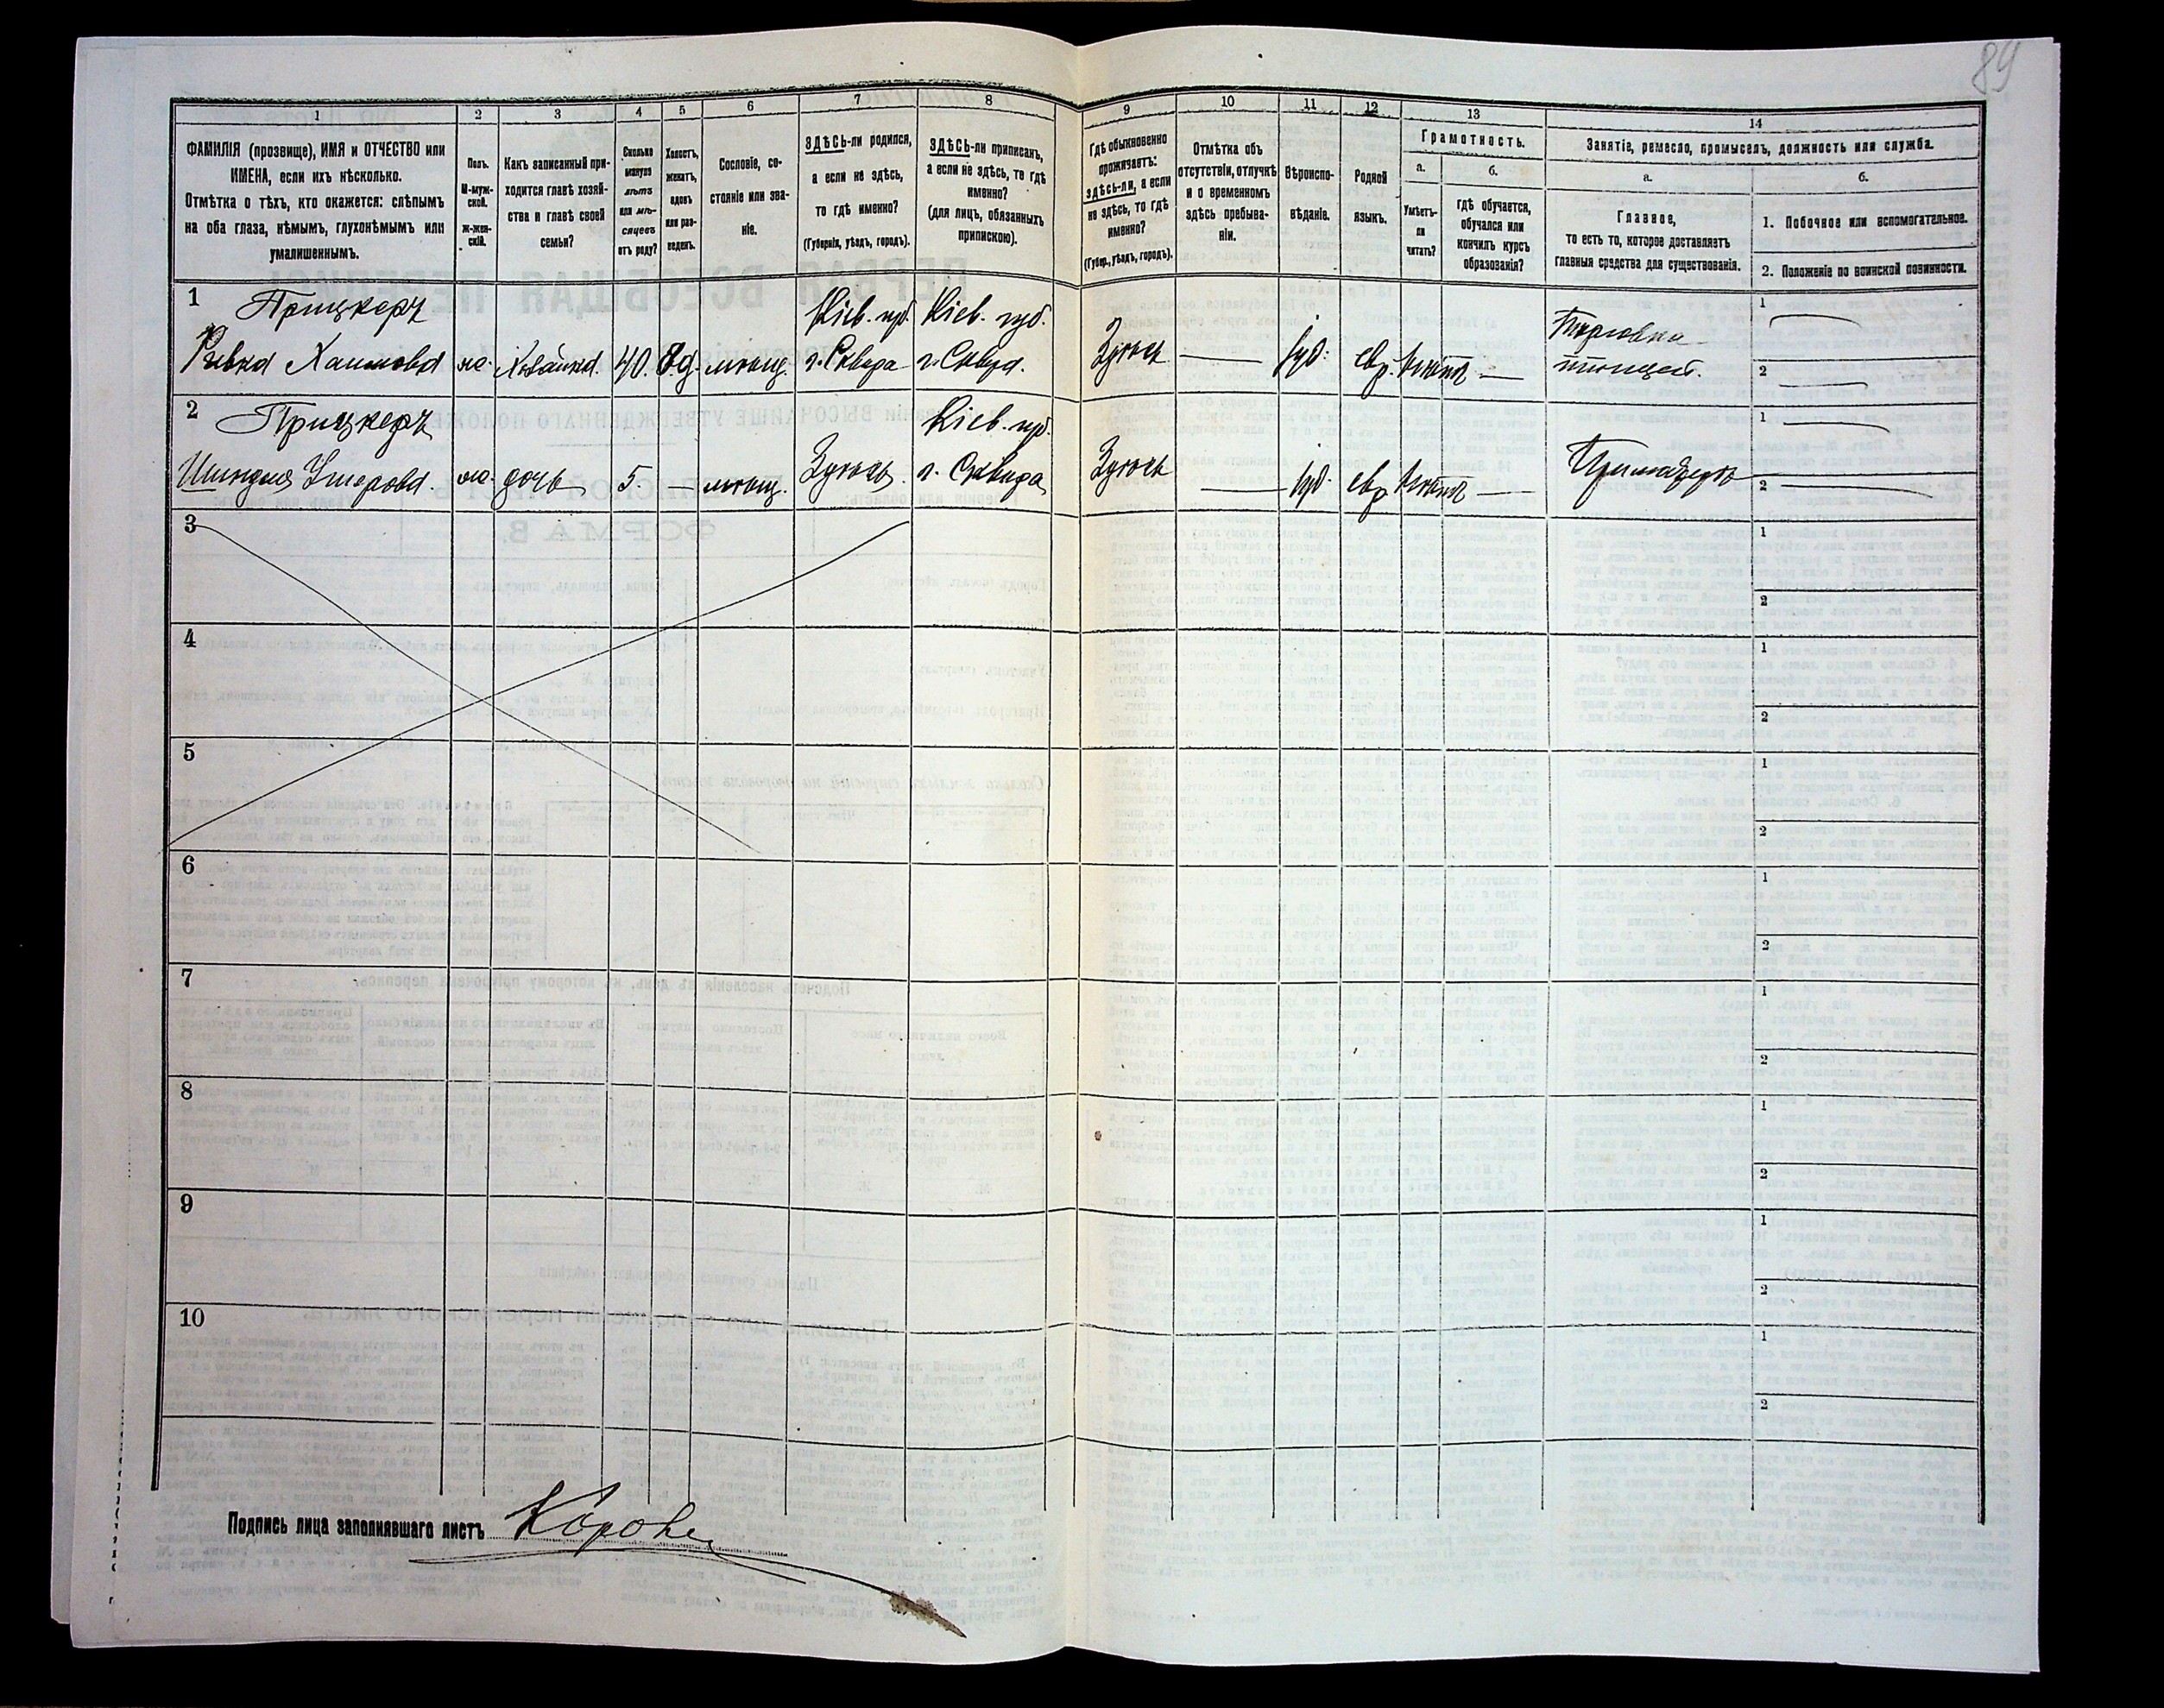 89
1 2 3 4 5 6 7 8 9 10 11 12 13 14
ФАМИЛІЯ (прозвище), ИМЯ и ОТЧЕСТВО или
ИМЕНА, если ихъ нѣсколько.
Отмѣтка о тѣхъ, кто окажется: слѣпымъ
на оба глаза, нѣмымъ, глухонѣмымъ или
умалишеннымъ.
Полъ.
М-муж-
ской.
ж-жен-
скій.
Какъ записанный при-
ходится главѣ хозяй-
ства и главѣ своей
семьи?
Сколько
минуло
лѣтъ
или мѣ-
сяцевъ
отъ роду?
Холостъ,
женатъ,
вдовъ
или раз-
веденъ.
Сословіе, со-
стояніе или зва-
ніе.
ЗДѢСЬ-ли родился,
а если не здѣсь,
то гдѣ именно?
(Губернія, уѣздъ, городъ).
ЗДѢСЬ-ли приписанъ,
а если не здѣсь, то гдѣ
именно?
(для лицъ, обязанныхъ
припискою).
Гдѣ обыкновенно
проживаетъ:
здѣсь-ли, а если
не здѣсь, то гдѣ
именно?
(Губер., уѣздъ, городъ).
Отмѣтка объ
отсутствіи, отлучкѣ
и о временномъ
здѣсь пребыва-
ніи.
Вѣроиспо-
вѣданіе.
Родной
языкъ.
Грамотность.
а.
Умѣетъ-
ли
читать?
б.
гдѣ обучается,
обучался или
кончилъ курсъ
образованія?
Занятіе, ремесло, промыселъ, должность или служба.
а.
Главное,
то есть то, которое доставляетъ
главныя средства для существованія.
б.
1. Побочное или вспомогательное.
2. Положеніе по воинской повинности.
1 Прицкеръ Кіев. губ. Кіев. губ. Торговка 1
Ривка Хаимовна ж. Хозяйка 40. вд. мѣщ. г. Сквира г. Сквира. Здѣсь іуд. евр. птицей. 2
2 Прицкеръ Кіев. губ. 1
дочь 5. мѣщ. Здѣсь. г. Сквира Здѣсь іуд. евр. 2
3 1
2
4 1
2
5 1
2
6 1
2
7 1
2
8 1
2
9 1
2
10 1
2
Подпись лица заполнявшаго листъ